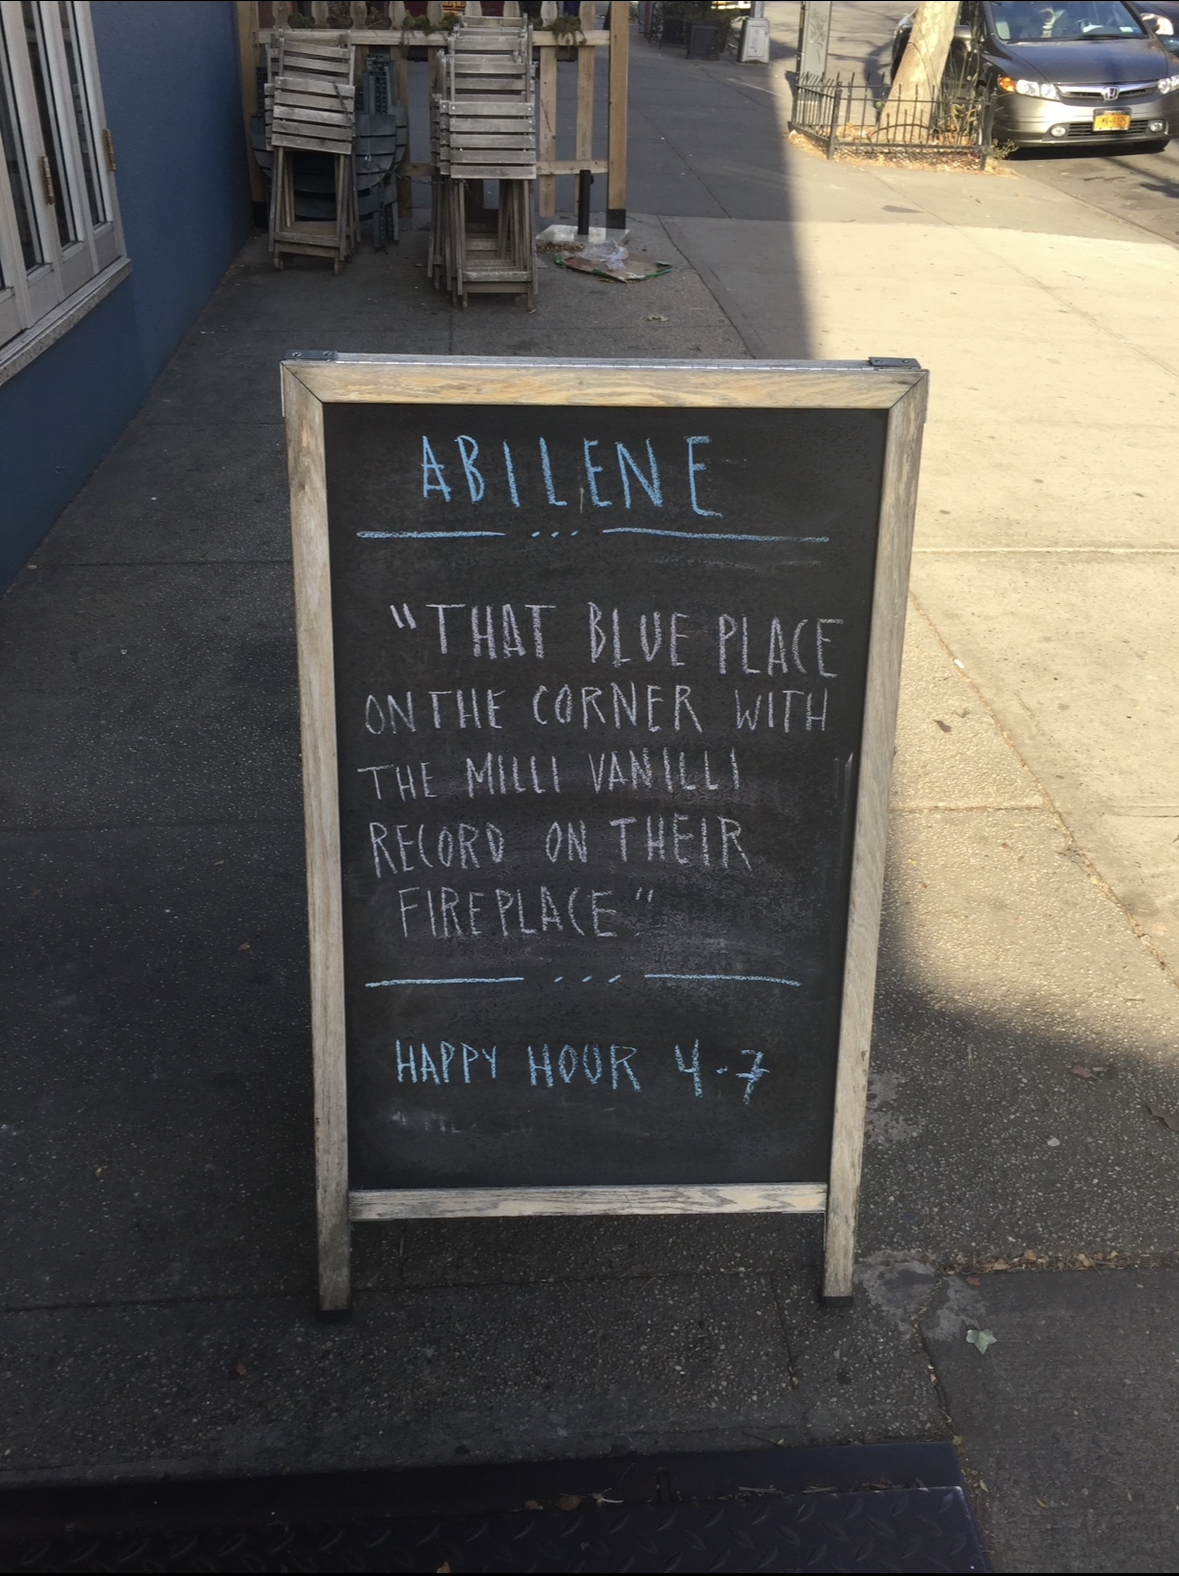 ABILENE
"THAT BLUE PLACE
ON THE CORNER WITH
THE MILLI VANILLI
RECORD ON THEIR
FIREPLACE"
HAPPY HOUR 4-7